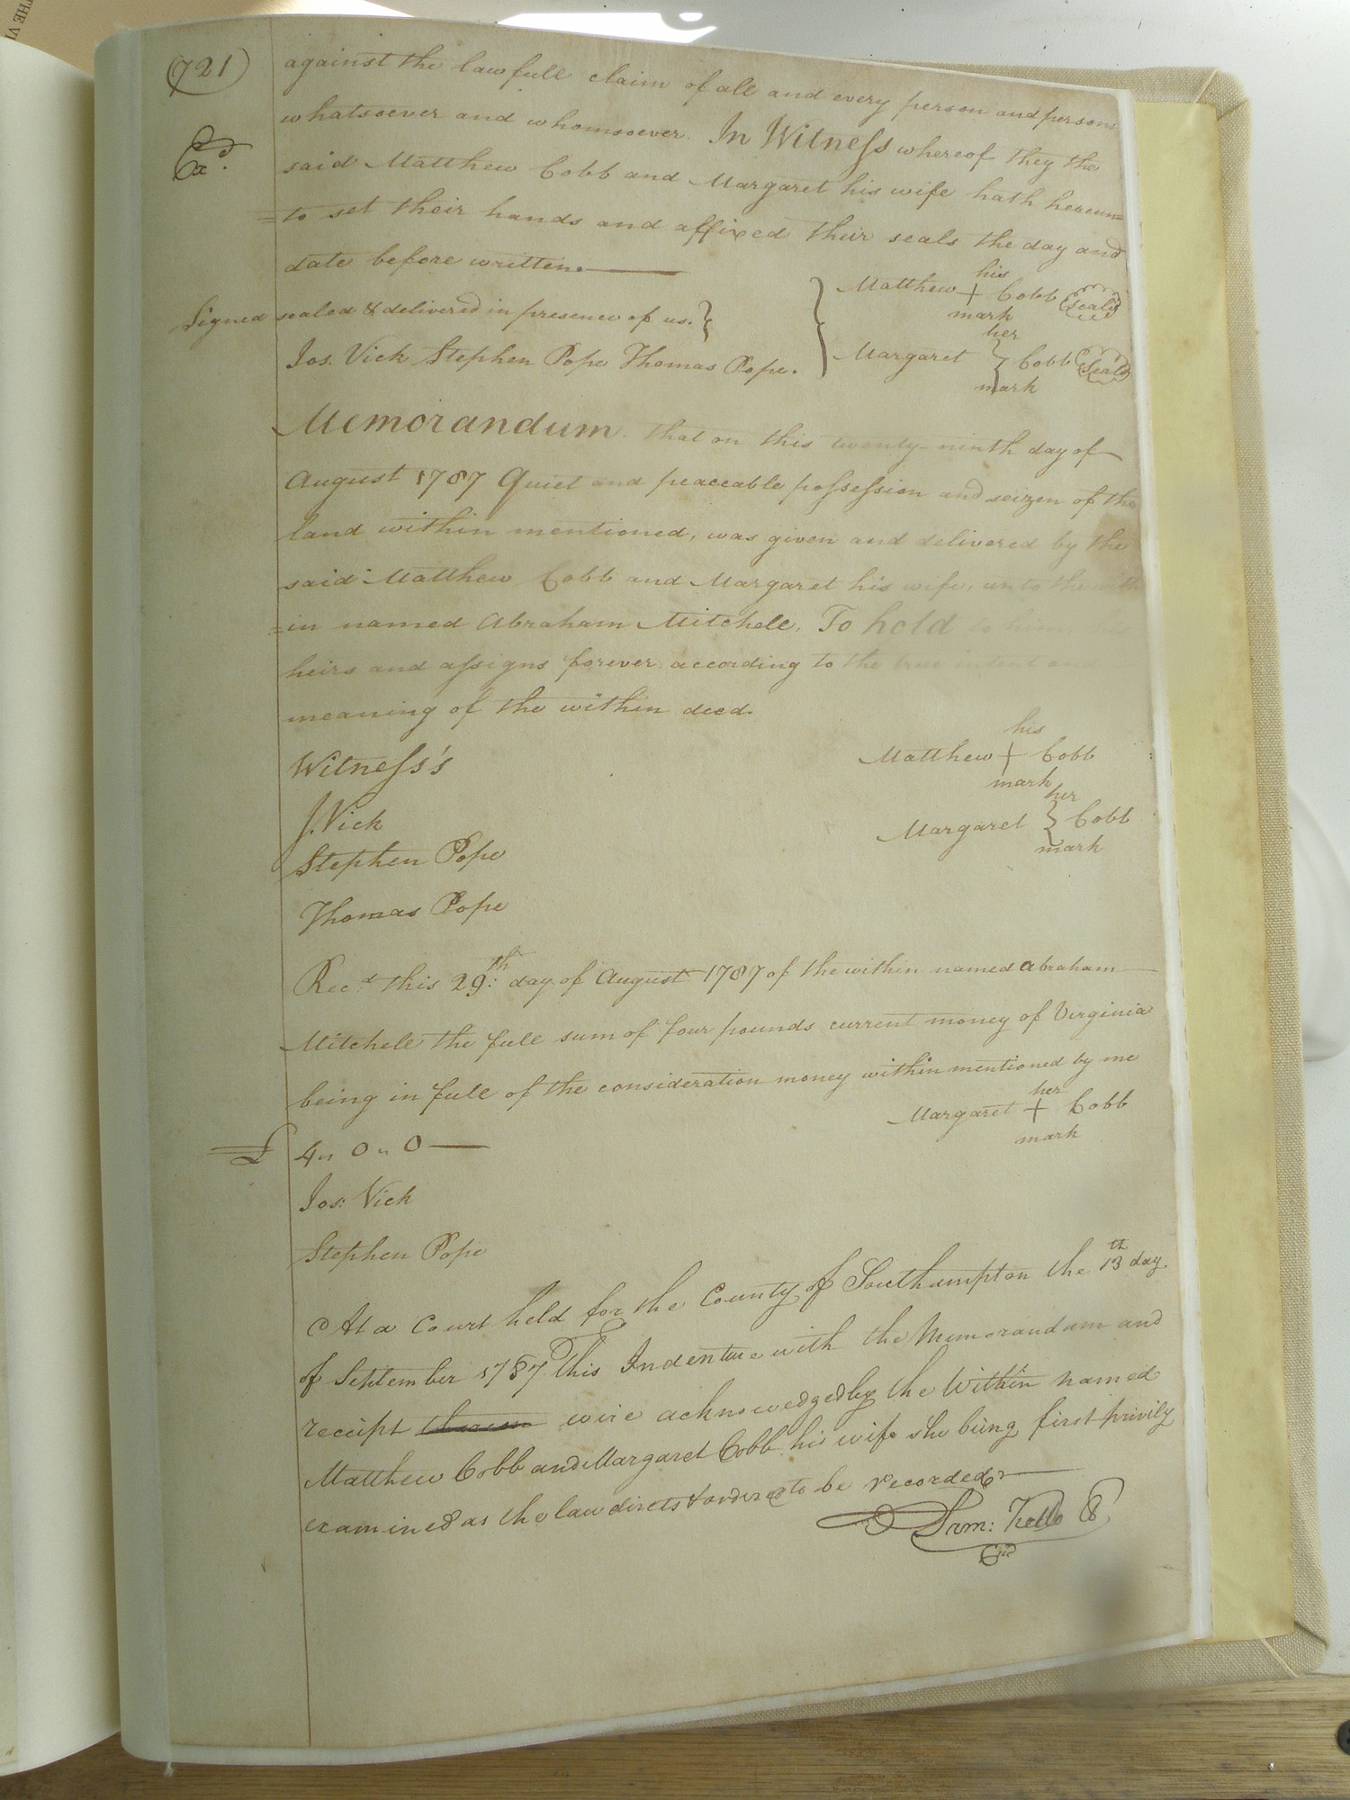 (721)
against the lawfull claim of all and every person and persons
whatsoever and whomsoever. In Witness whereof they the
Exd.
said Matthew Cobb and Margaret his wife hath hereun=
=to set their hands and affixed their seals the day and
date before written.
Signed sealed & delivered in presence of us.
Jos. Vick Stephen Pope Thomas Pope.
his
Matthew + Cobb (seal)
mark
her
Margaret } Cobb (seal)
mark
Memorandum that on this twenty-ninth day of
August 1787 Quiet and peaceable possession and seizen of the
land within mentioned, was given and delivered by the
said Matthew Cobb and Margaret his wife, unto the with
=in named Abraham Mitchell. To hold to him
heirs and assigns forever according to the true intent and
meaning of the within deed.
Witness's
J. Vick
Stephen Pope
Thomas Pope
his
Matthew + Cobb
mark
her
Margaret } Cobb
mark
Rec.d this 29th: day of August 1787 of the within named Abraham
Mitchell the full sum of four pounds current money of Virginia
being in full of the consideration money within mentioned by me
her
Margaret + Cobb
mark
£ 4 " 0 " 0
Jos: Vick
Stephen Pope
At a Court held for the County of Southampton the 13th day
of September 1787 This Indenture with the Memorandum and
receipt were acknowedged by the Within named
Matthew Cobb and Margaret Cobb his wife she being first privily
examined as the law directs & ordered to be recorded
Sam: Kello C